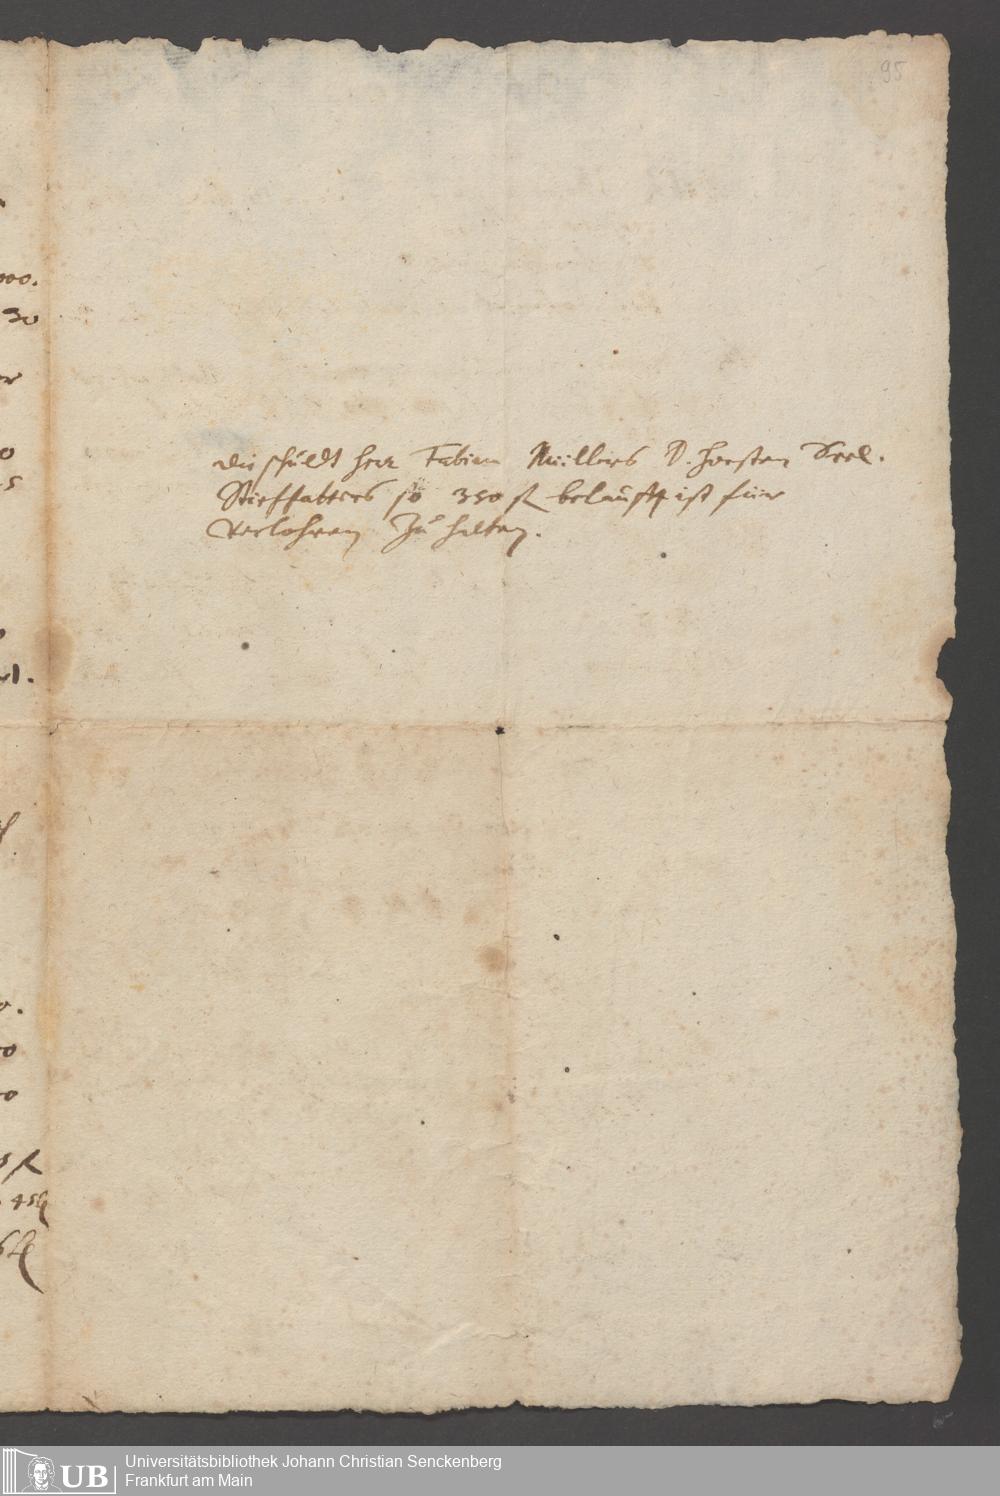 95
die schuldt herr Fabian Müllers D. Horsten Seel.
Stieffvatters so 350 fl belaufft ist für
verlohren zu halten.
000.
30
0
5
0.
fl
45
UB
Universitätsbibliothek Johann Christian Senckenberg
Frankfurt am Main